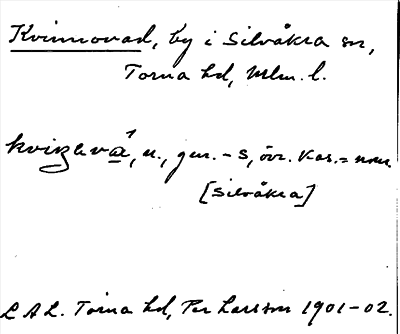 Kvinnovad, by i Silvåkra sn,
Torna hd, Mlm. l.
n., gen. -s, övr. kas. = nom.
[Silvåkra]
L A L. Torna hd, Per Larsson 1901-02.